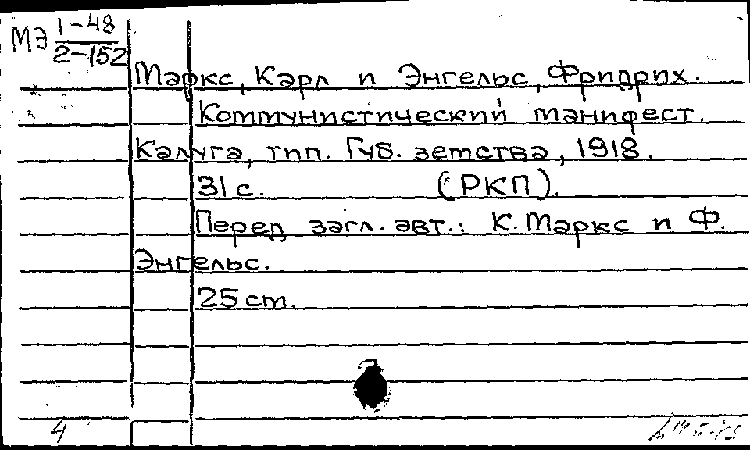 МЭ 1-48
2-152
Маркс, Карл и Энгельс, Фридрих.
Коммунистический манифест.
Калуга, тип. Губ. земства, 1918.
31 с. (РКП).
Перед загл. авт.: К. Маркс и Ф.
Энгельс.
25 cm.
4